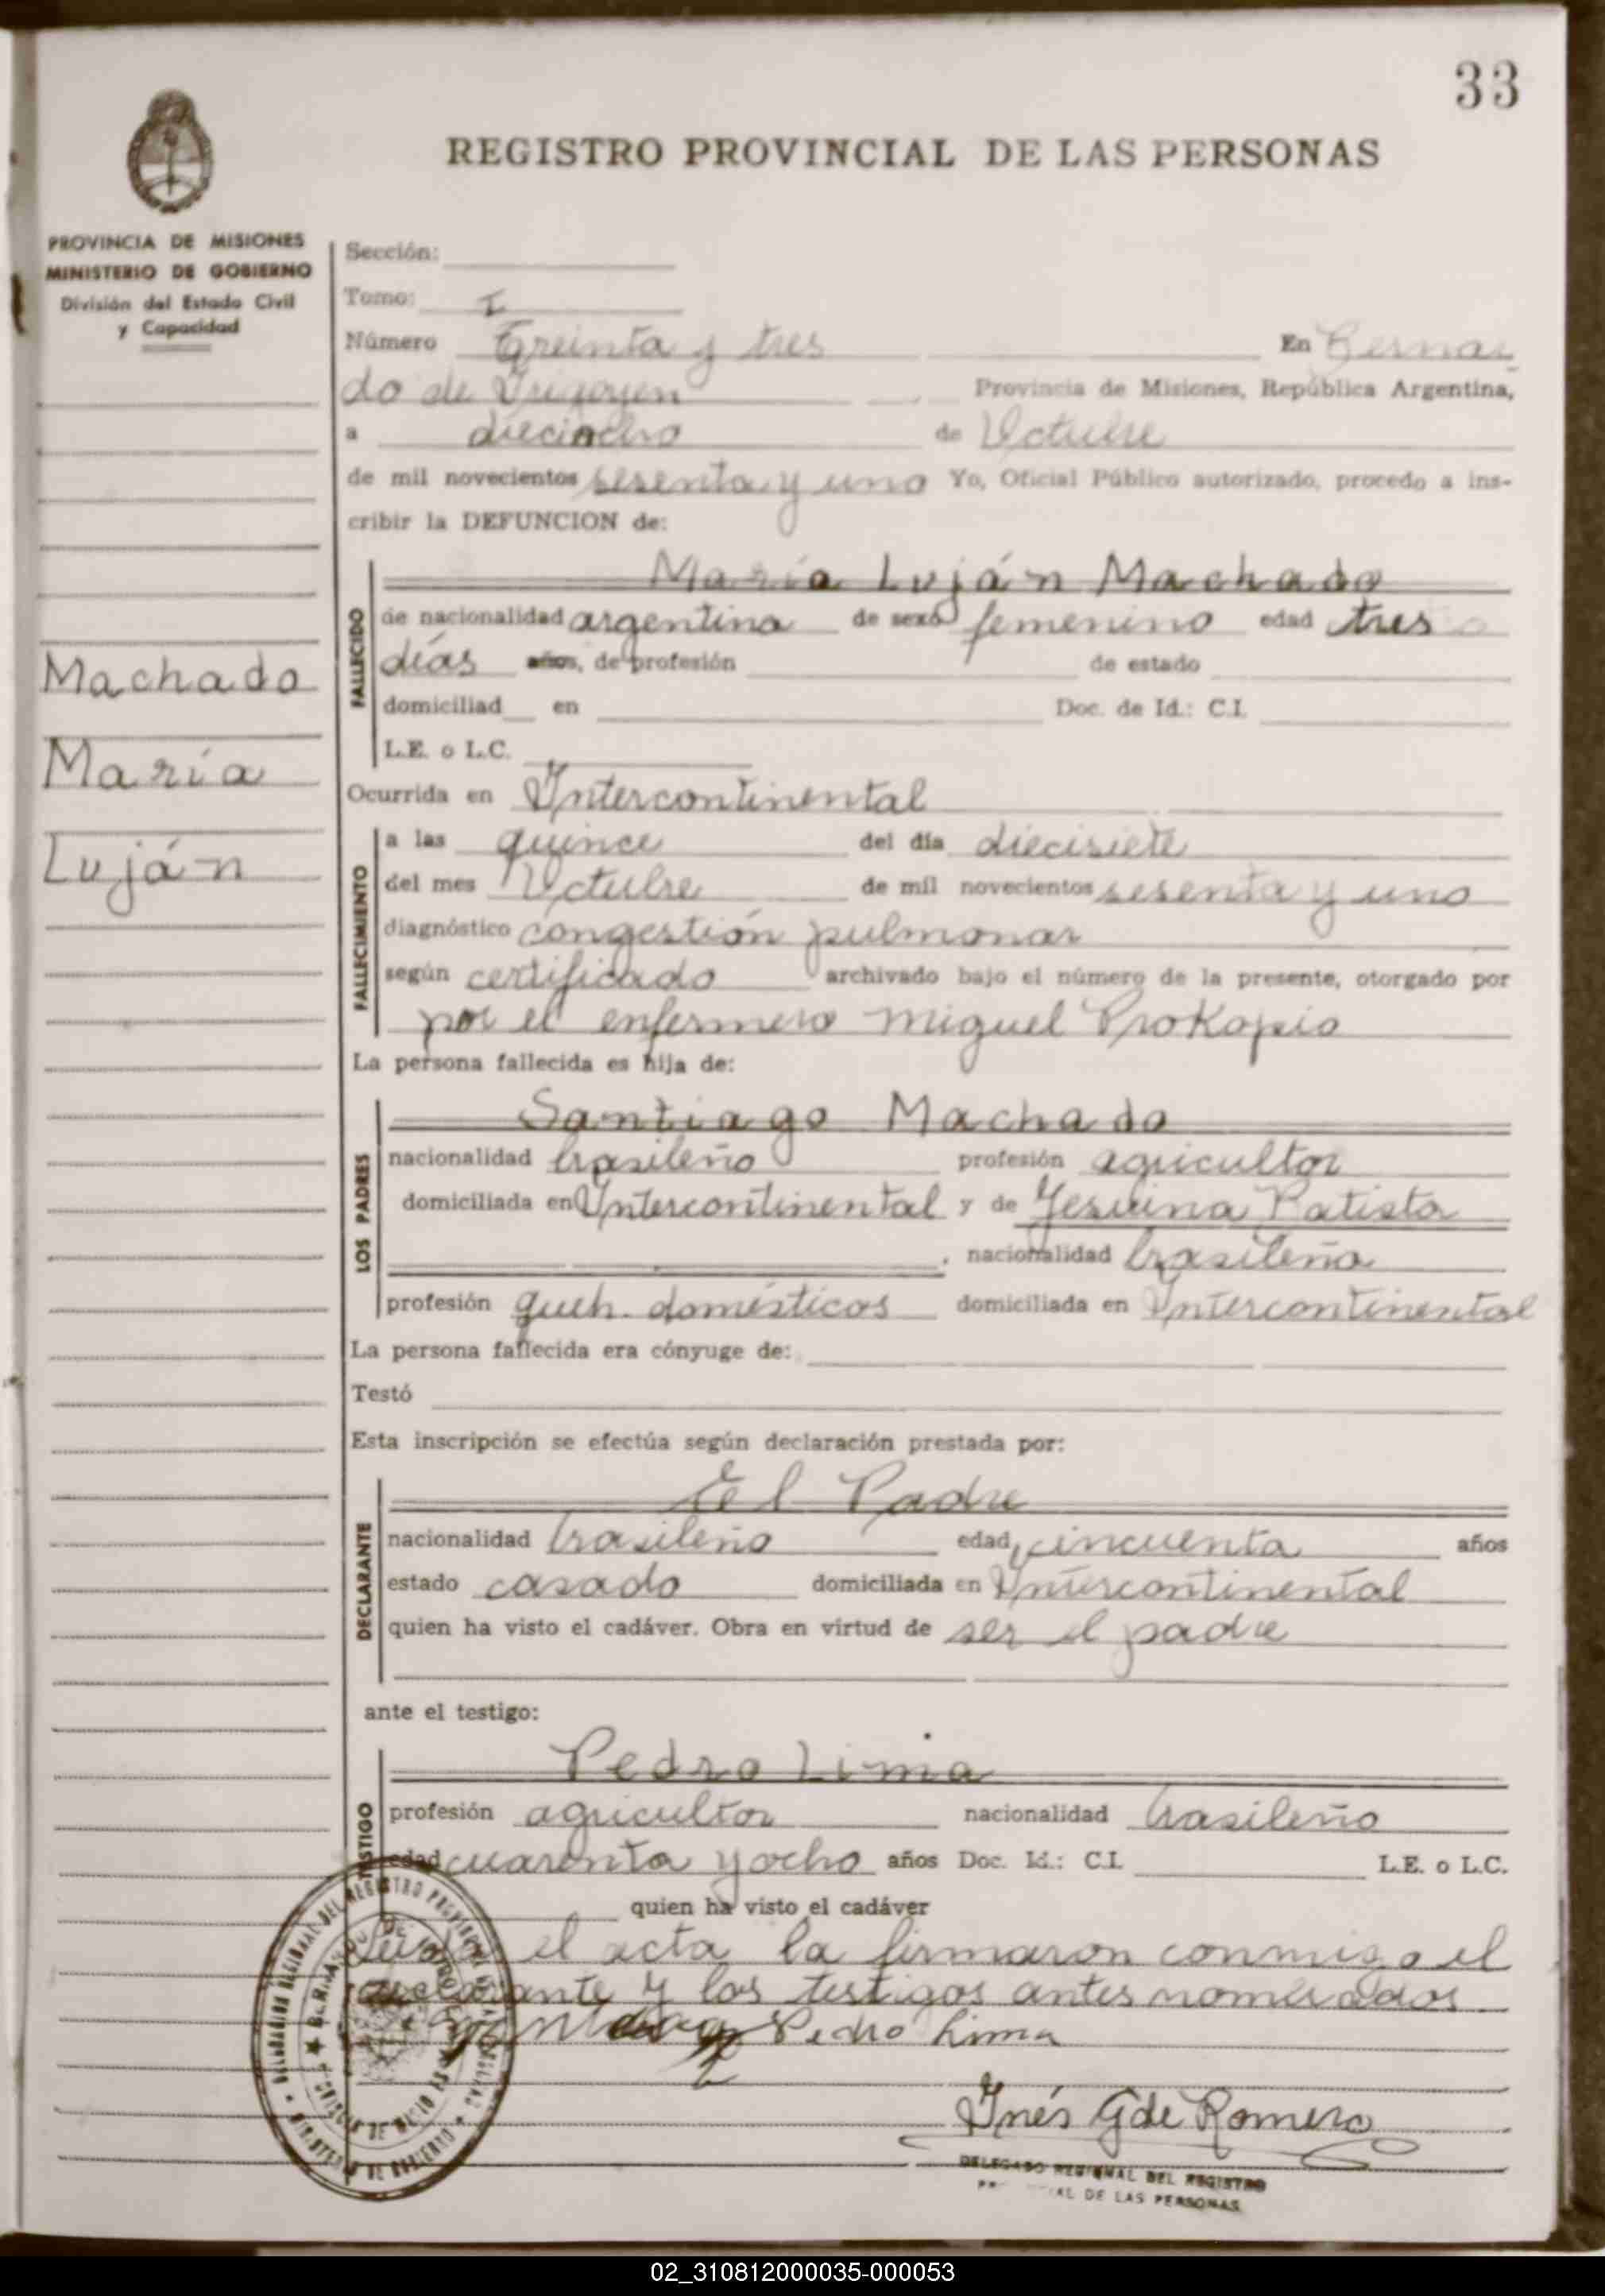 33
REGISTRO PROVINCIAL DE LAS PERSONAS
PROVINCIA DE MISIONES
MINISTERIO DE GOBIERNO
División del Estado Civil
y Capacidad
Machado
María
Luján
Sección:
Tomo: I
Número Treinta y tres En Bernar
do de Irigoyen Provincia de Misiones, República Argentina,
a dieciocho de Octubre
de mil novecientos sesenta y uno Yo, Oficial Público autorizado, procedo a ins-
cribir la DEFUNCION de:
FALLECIDO
María Luján Machado
de nacionalidad argentina de sexo femenino edad tres
días años, de profesión de estado
domiciliad en Doc. de Id.: C.I.
L.E. o L.C.
Ocurrida en Intercontinental
FALLECIMIENTO
a las quince del día diecisiete
del mes Octubre de mil novecientos sesenta y uno
diagnóstico congestión pulmonar
según certificado archivado bajo el número de la presente, otorgado por
por el enfermero Miguel Prokopio
La persona fallecida es hija de:
LOS PADRES
Santiago Machado
nacionalidad brasileño profesión agricultor
domiciliada en Intercontinental y de Jesuina Batista
, nacionalidad brasileña
profesión queh. domésticos domiciliada en Intercontinental
La persona fallecida era cónyuge de:
Testó
Esta inscripción se efectúa según declaración prestada por:
DECLARANTE
El Padre
nacionalidad brasileño edad cincuenta años
estado casado domiciliada en Intercontinental
quien ha visto el cadáver. Obra en virtud de ser el padre
ante el testigo:
TESTIGO
Pedro Lima
profesión agricultor nacionalidad brasileño
edad cuarenta y ocho años Doc. Id.: C.I. L.E. o L.C.
quien ha visto el cadáver
Leída el acta la firmaron conmigo el
declarante y los testigos antes nombrados
Pedro Lima
Inés G de Romero
DELEGADO REGIONAL DEL REGISTRO
DE LAS PERSONAS
02_310812000035-000053